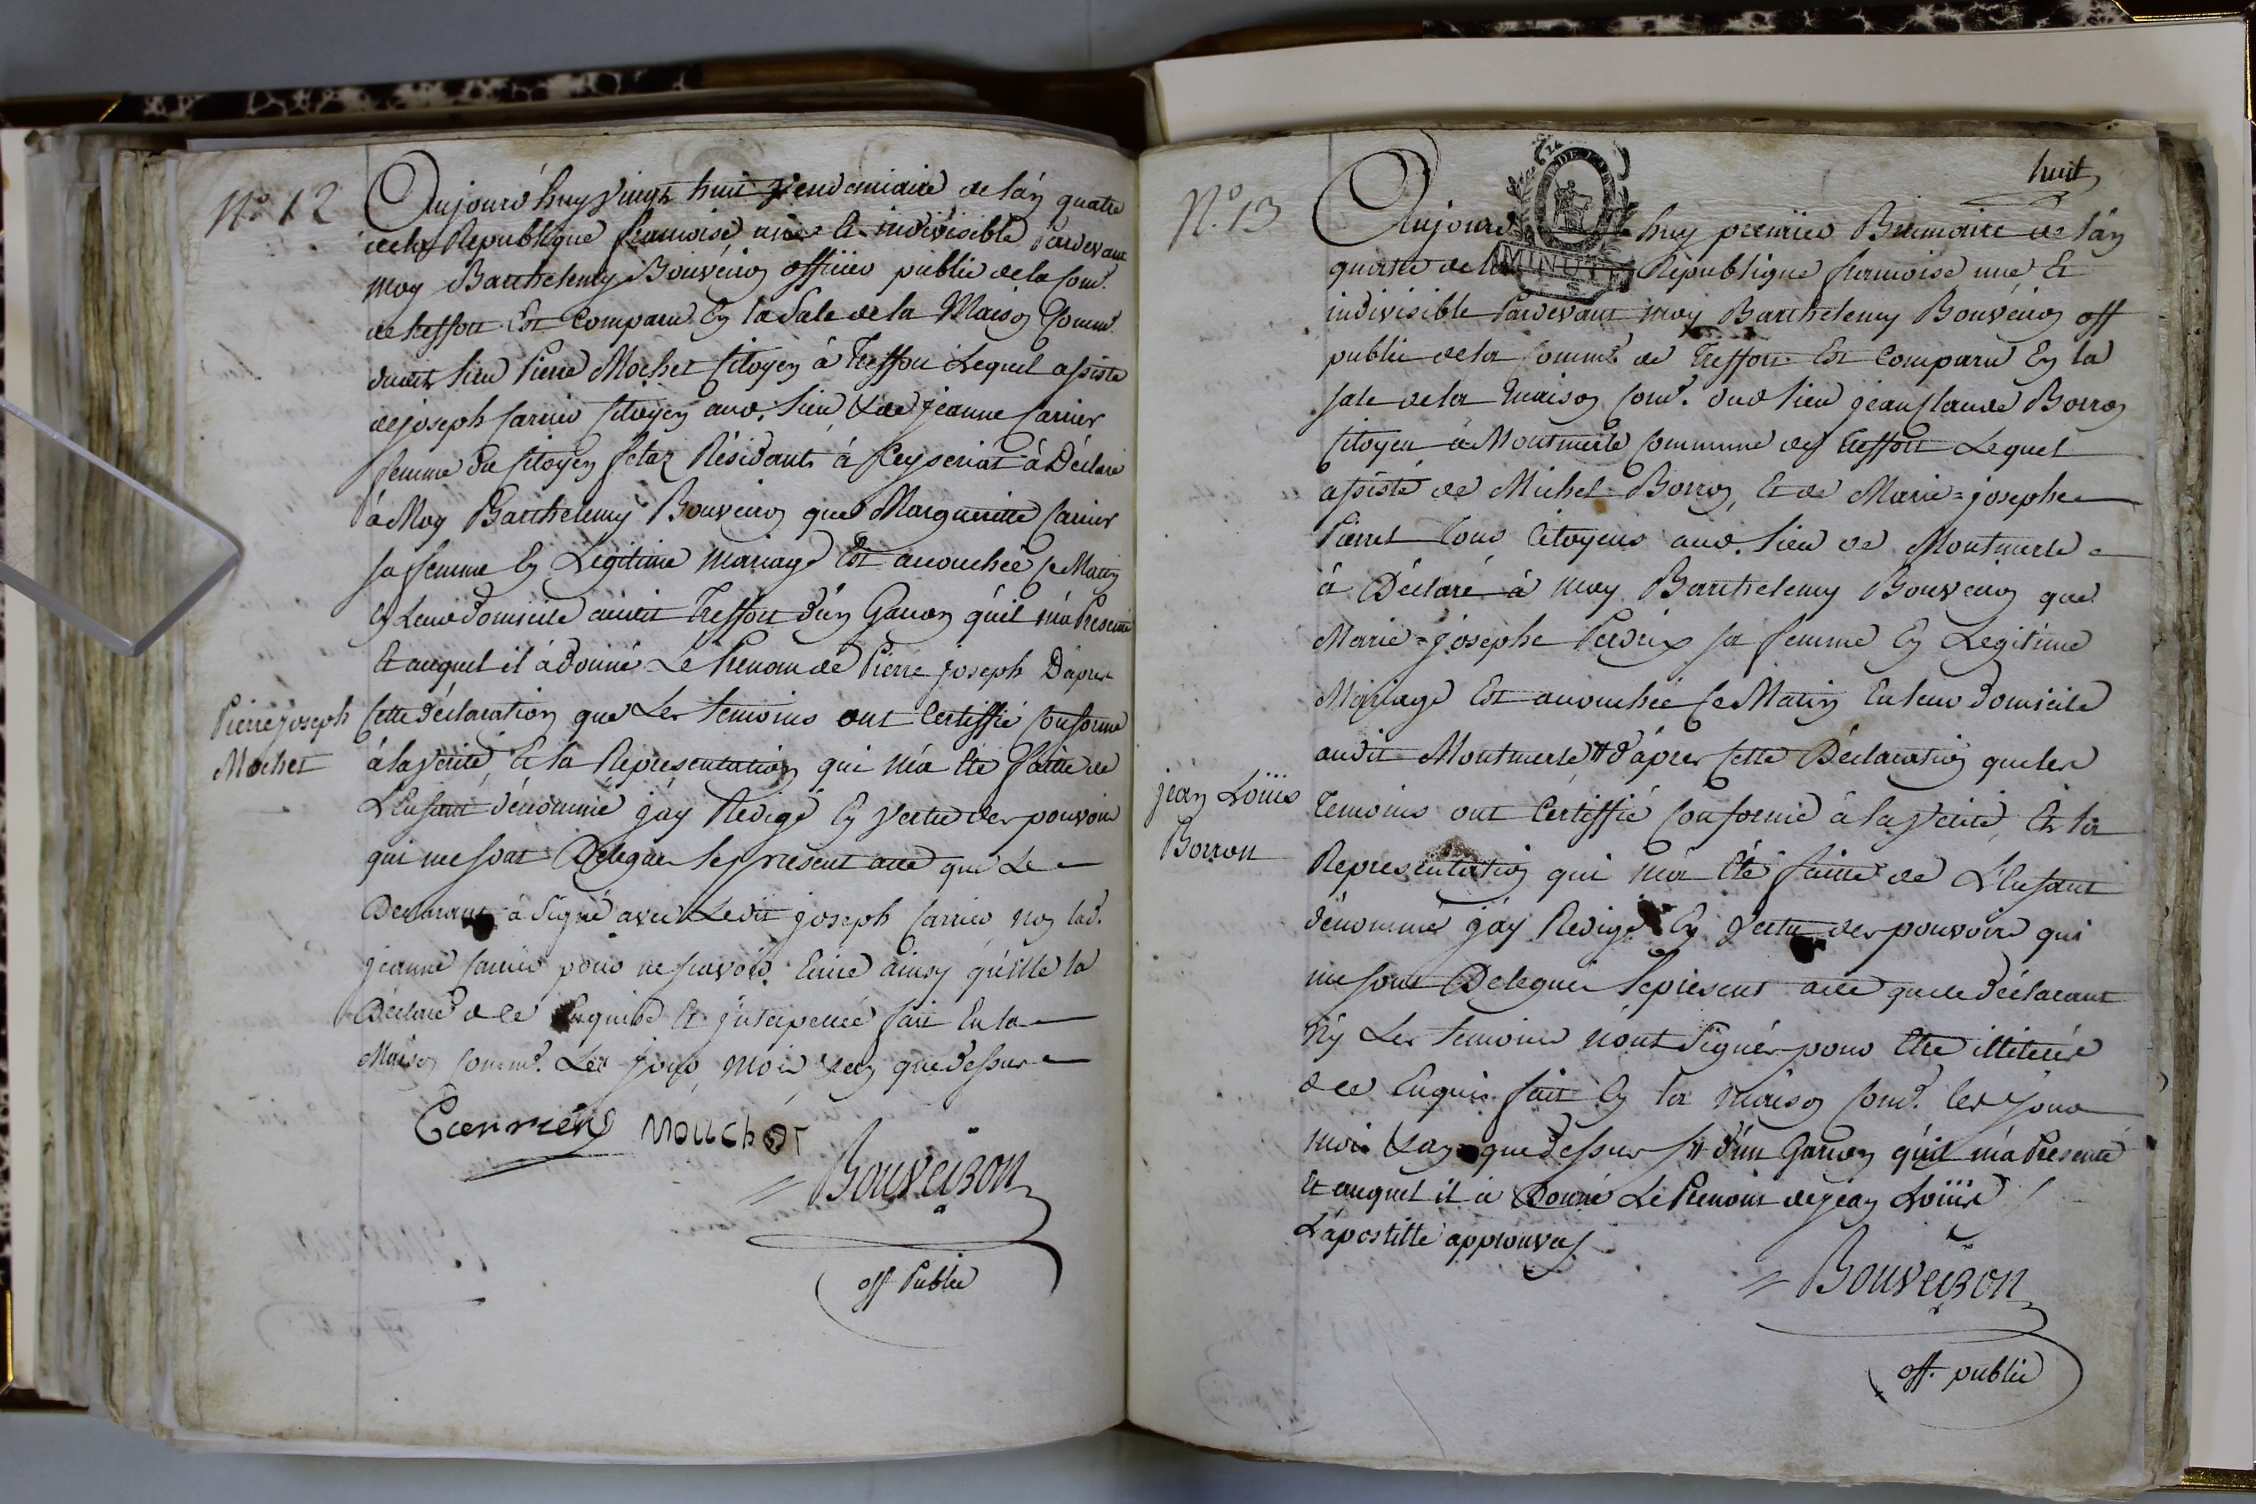 N.º 12
Aujourd'huy vingt huit vendemiaire de l'an quatre
de la Republique francoise une Et indivisible Pardevant
moy Barthelemy Bouveiron officier public de la Com.e
de treffort Est Comparu En la Sale de la Maison Comm.e
dudit lieu Pierre Mochet Citoyen à Treffort Lequel assisté
de joseph Carrier Citoyen aud. lieu & de jeanne Carrier
femme du Citoyen Résidant à Ceyseriat à Déclaré
à Moy Barthelemy Bouveiron que Margueritte Carrier
sa femme En Légitime mariage Est accouchée ce Matin
En Leur domicile audit Treffort d'un Garcon qu'il m'a Presenté
Et auquel il à donné Le Prenom de Pierre joseph D'apres
Pierre joseph
Mochet
Cette déclaration que Les temoins ont Certiffié Conforme
à la vérité, Et la Representation qui m'a été faitte de
L'Enfant dénommé j'ay Redigé En vertu des pouvoirs
qui me sont Delegués le present acte que Le
Declarant à Signé avec Ledit joseph Carrier non lad.
jeanne Carrier pour ne scavoir Ecrire ainsy qu'elle la
Déclaré de ce Enquise Et jnterpellée fait En la
Maison Comm.e Les jour, mois & an que dessus
Carrier Mouchot
Bouveiron
off Public
huit
N.º 13
MINUTE
Aujourd'huy premier Brumaire de l'an
quatre de la Republique francoise une Et
indivisible Pardevant moy Barthelemy Bouveiron off
public de la Comm.e de Treffort Est Comparu En la
sale de la maison Com.e dud lieu jean Claude Borron
Citoyen à Montmerle Commune de Treffort Lequel
assisté de Michel Borron, Et de Marie=josephe
Pierret tous Citoyens aud. lieu de Montmerle
à Déclaré à moy Barthelemy Bouveiron que
Marie=josephe Perdrix sa femme En Legitime
Mariage Est accouchée Ce Matin En leur domicile
audit Montmerle # d'apres Cette Déclaration que les
jean Loüis
Borron
Temoins ont Certiffié Conforme à la vérité, Et la
Representation qui m'a Eté faitte de L'Enfant
dénommé j'ay Redigé En vertu des pouvoirs qui
me sont Delegués le present acte que le déclarant
n'y Les temoins n'ont Signés pour Etre illiterés
de ce Enquis fait En la maison Com.e les jour
mois & an que dessus # d'un Garcon qu'il m'a Presenté
Et auquel il a Donné Le Prenom de jean Loüis
L'apostille approuvée
Bouveiron
off. public